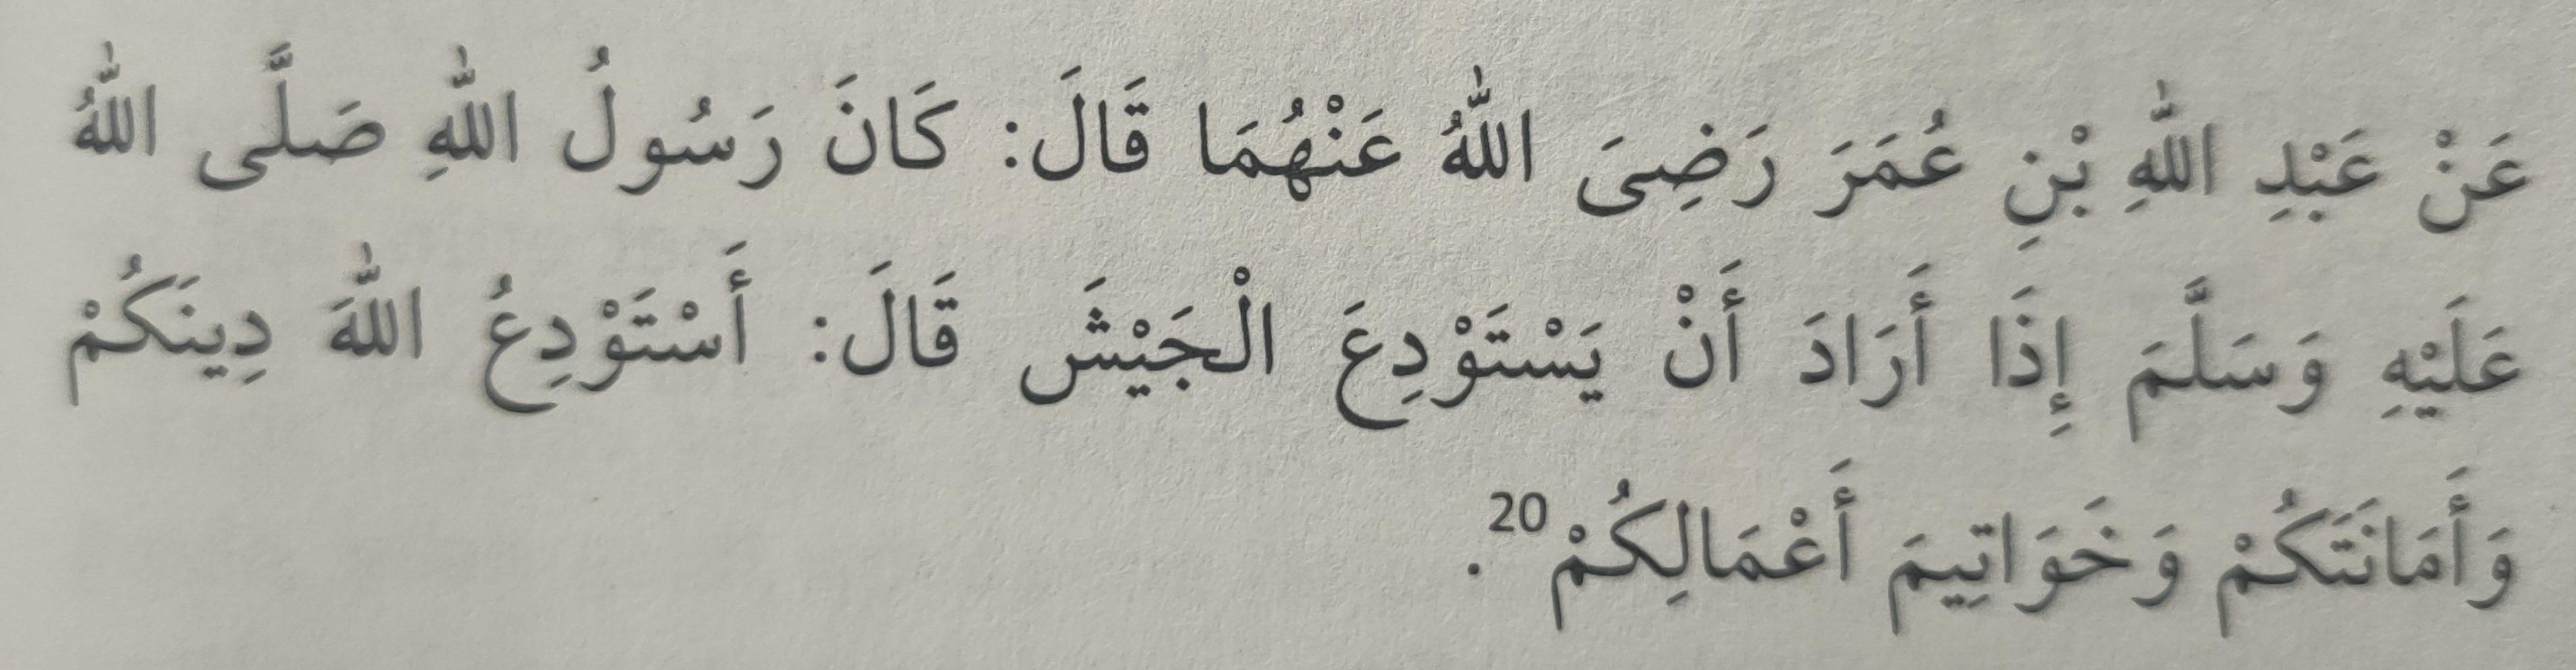 عَنْ عَبْدِ اللّٰهِ بْنِ عُمَرَ رَضِىَ اللّٰهُ عَنْهُمَا قَالَ: كَانَ رَسُولُ اللّٰهِ صَلَّى اللّٰهُ
عَلَيْهِ وَسَلَّمَ إِذَا أَرَادَ أَنْ يَسْتَوْدِعَ الْجَيْشَ قَالَ: أَسْتَوْدِعُ اللّٰهَ دِينَكُمْ
وَأَمَانَتَكُمْ وَخَوَاتِيمَ أَعْمَالِكُمْ20.